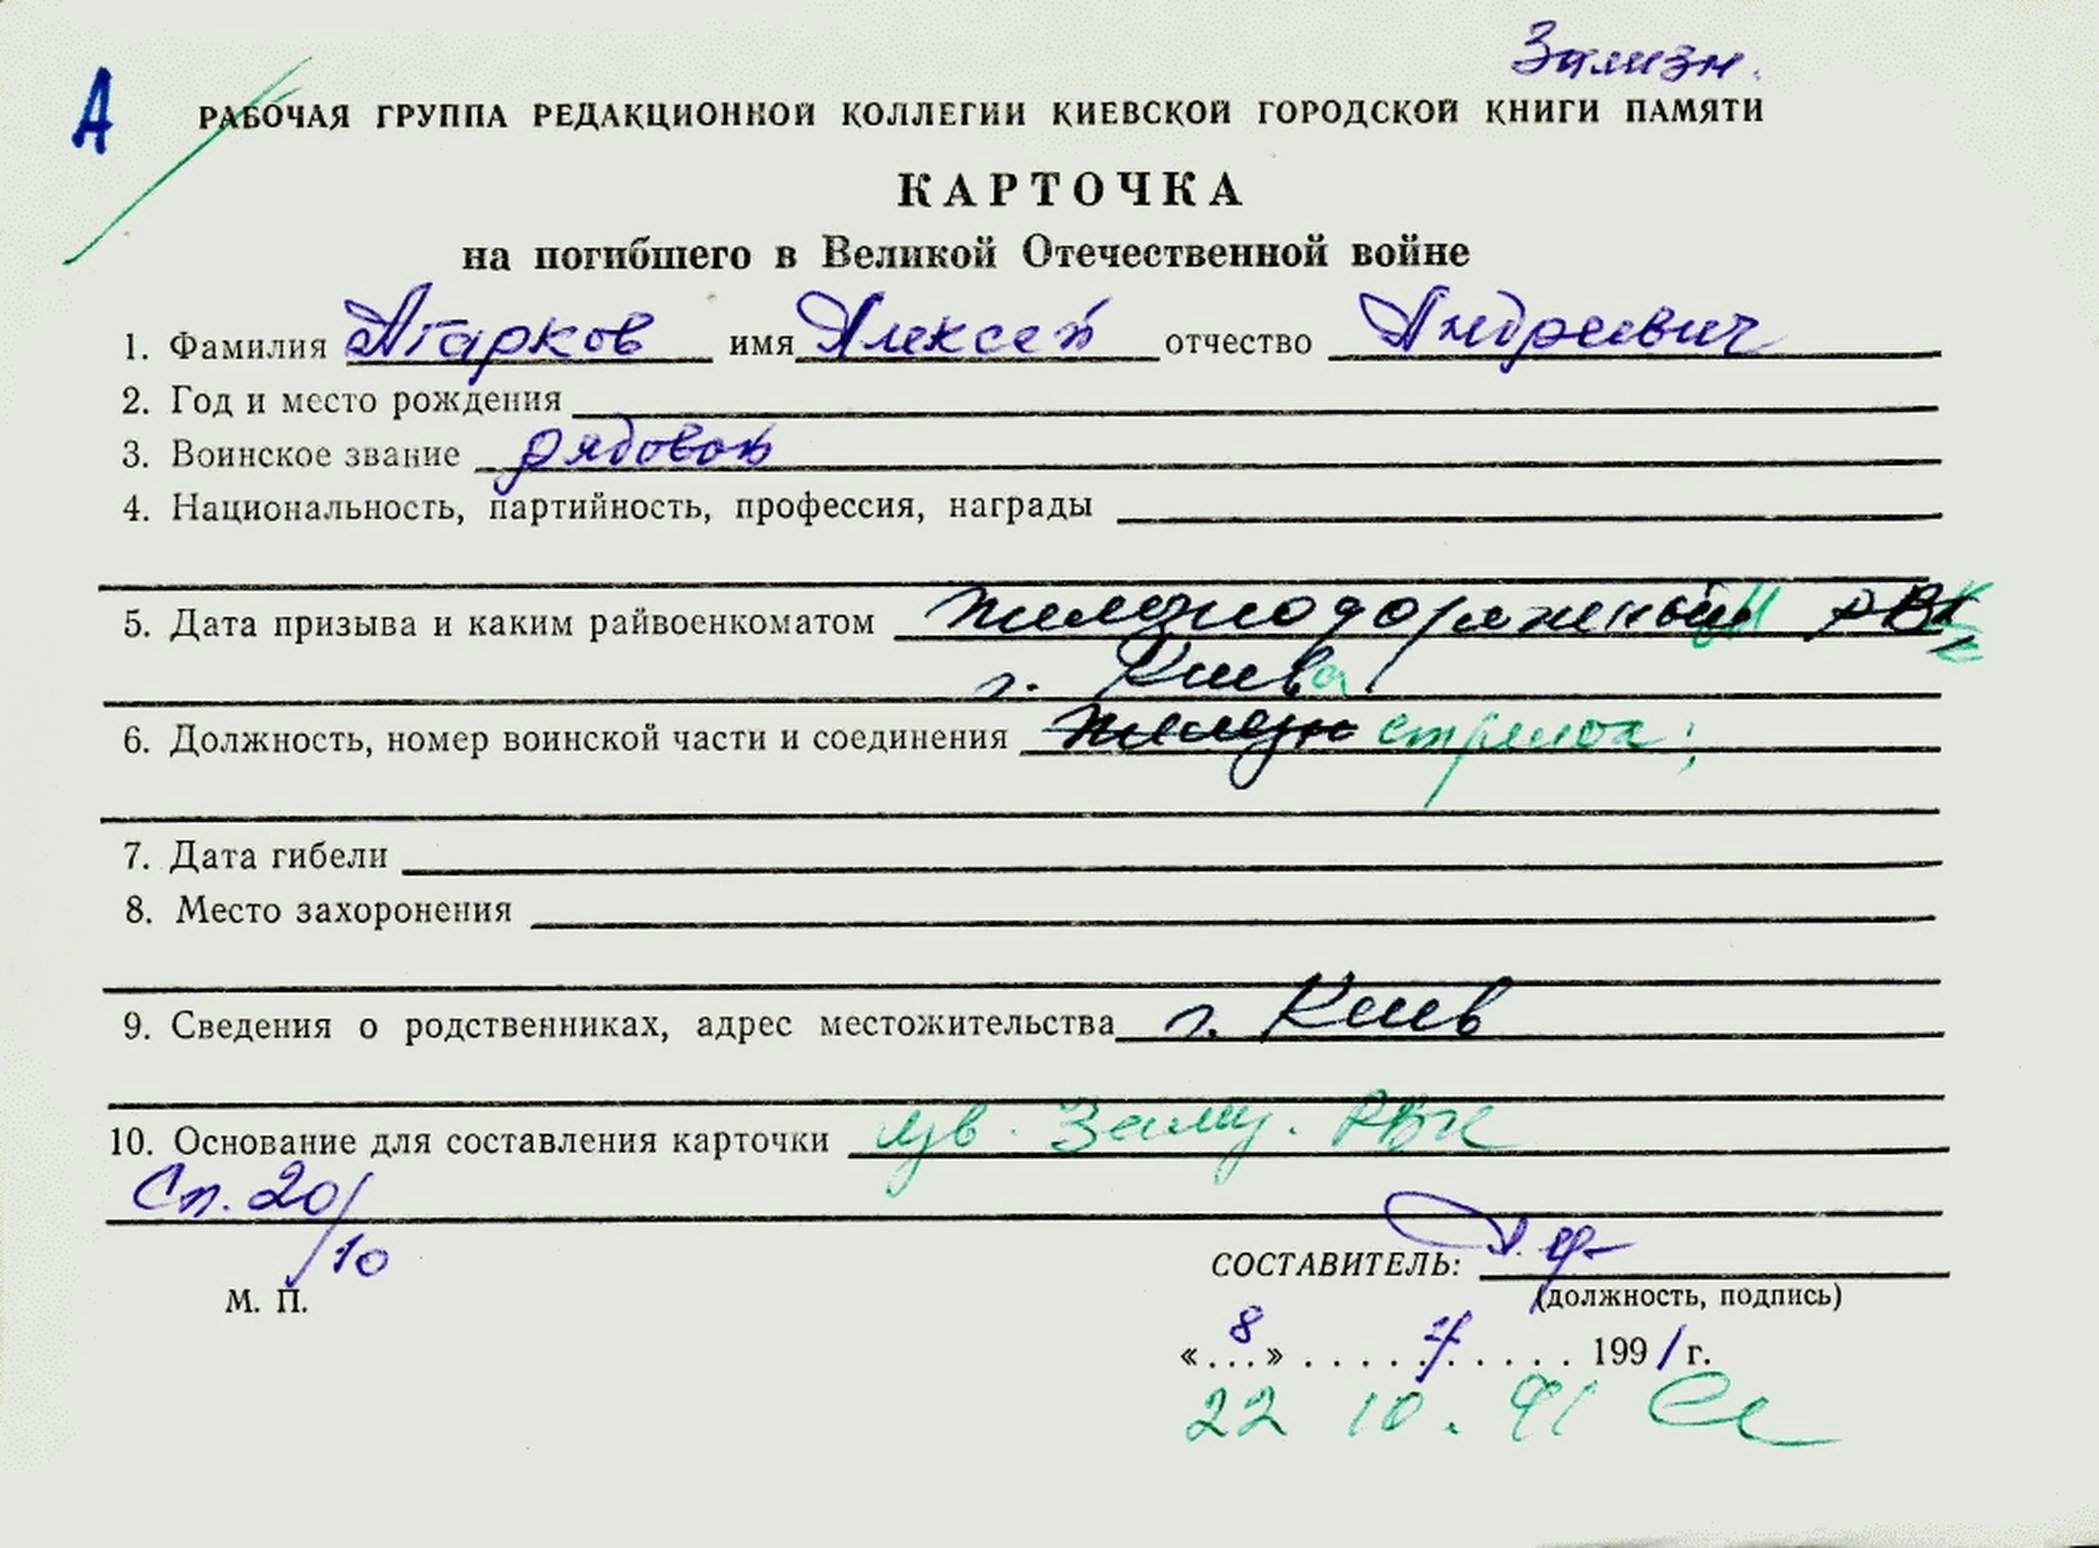 Зализн.
А
РАБОЧАЯ ГРУППА РЕДАКЦИОННОЙ КОЛЛЕГИИ КИЕВСКОЙ ГОРОДСКОЙ КНИГИ ПАМЯТИ
КАРТОЧКА
на погибшего в Великой Отечественной войне
1. Фамилия Агарков имя Алексей отчество Андреевич
2. Год и место рождения
3. Воинское звание рядовой
4. Национальность, партийность, профессия, награды
5. Дата призыва и каким райвоенкоматом Железнодорожный РВК
г. Киева
6. Должность, номер воинской части и соединения стрелок;
7. Дата гибели
8. Место захоронения
9. Сведения о родственниках, адрес местожительства г. Киев
10. Основание для составления карточки РВК
Сп. 20/10
СОСТАВИТЕЛЬ:
М. П.
(должность, подпись)
«8» 7 1991 г.
22 10. 91